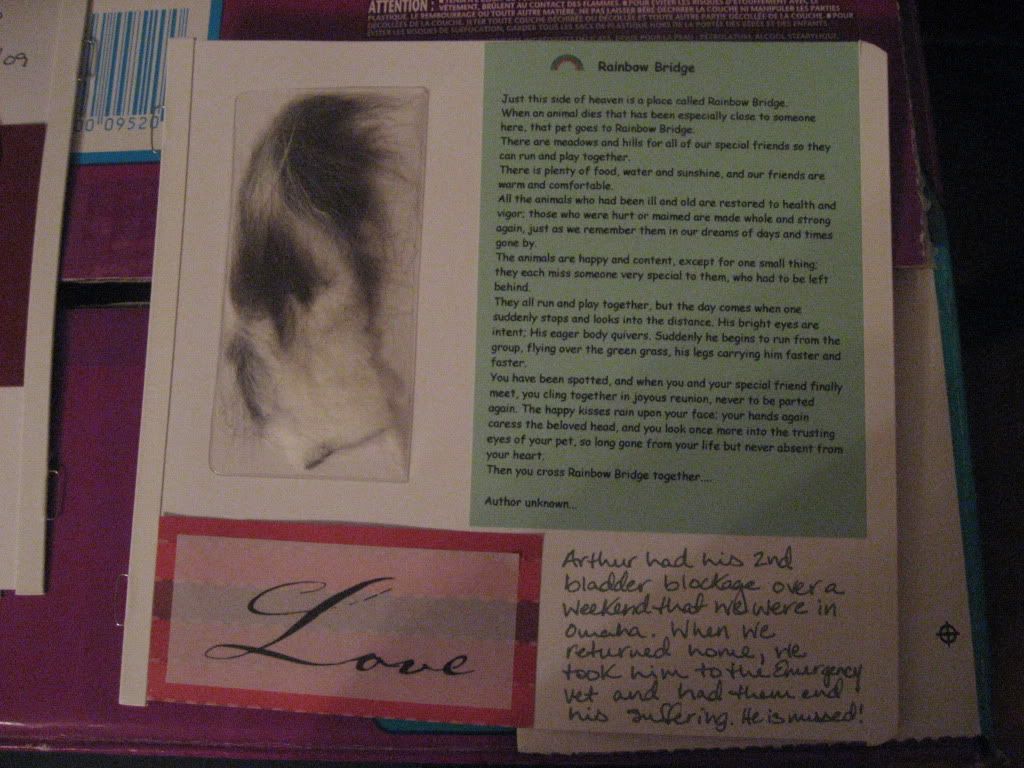 09
00 09520
ATTENTION :
VÊTEMENT, BRÛLENT AU CONTACT DES FLAMMES. • POUR ÉVITER LES RISQUES
Rainbow Bridge
Just this side of heaven is a place called Rainbow Bridge.
When an animal dies that has been especially close to someone
here, that pet goes to Rainbow Bridge.
There are meadows and hills for all of our special friends so they
can run and play together.
There is plenty of food, water and sunshine, and our friends are
warm and comfortable.
All the animals who had been ill and old are restored to health and
vigor; those who were hurt or maimed are made whole and strong
again, just as we remember them in our dreams of days and times
gone by.
The animals are happy and content, except for one small thing;
they each miss someone very special to them, who had to be left
behind.
They all run and play together, but the day comes when one
suddenly stops and looks into the distance. His bright eyes are
intent; His eager body quivers. Suddenly he begins to run from the
group, flying over the green grass, his legs carrying him faster and
faster.
You have been spotted, and when you and your special friend finally
meet, you cling together in joyous reunion, never to be parted
again. The happy kisses rain upon your face; your hands again
caress the beloved head, and you look once more into the trusting
eyes of your pet, so long gone from your life but never absent from
your heart.
Then you cross Rainbow Bridge together....
Author unknown...
Love
Arthur had his 2nd
bladder blockage over a
weekend that we were in
Omaha. When we
returned home, we
took him to the Emergency
vet and had them end
his suffering. He is missed!